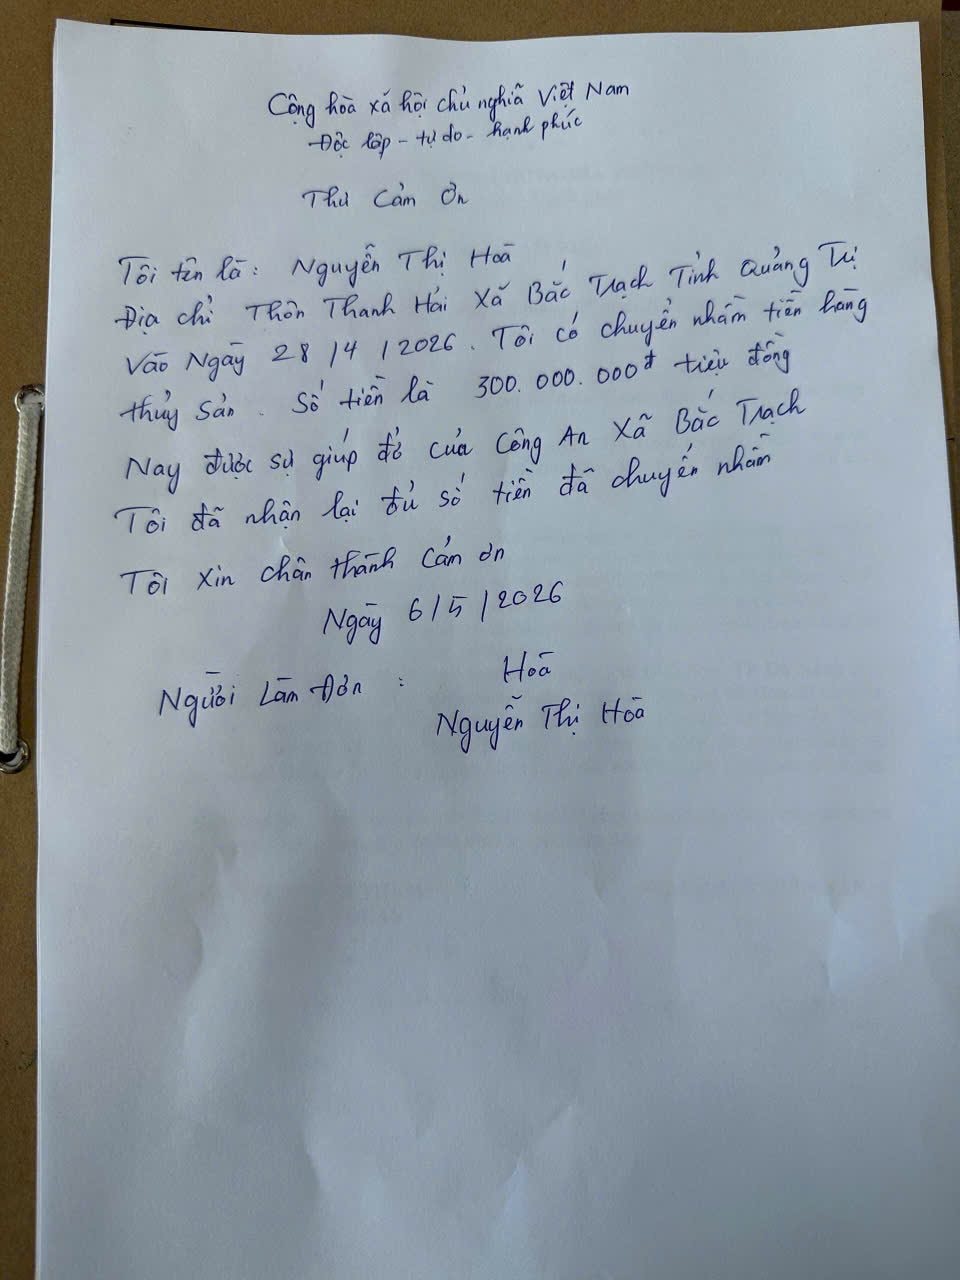 Cộng hòa xá hội chủ nghiã Việt Nam
Độc lập - tự do - hạnh phúc
Thư Cảm Ơn
Tôi tên là: Nguyễn Thị Hoà
Địa chỉ Thôn Thanh Hải Xã Bắc Trạch Tỉnh Quảng Trị
Vào Ngày 28/4/2026. Tôi có chuyển nhầm tiền hàng
thủy sản. Số tiền là 300.000.000đ triệu đồng
Nay được sự giúp đỏ của Công An Xã Bắc Trạch
Tôi đã nhận lại đủ số tiền đã chuyển nhầm
Tôi xin chân thành Cảm ơn
Ngày 6/5/2026
Người Làm Đơn : Hoà
Nguyễn Thị Hoà